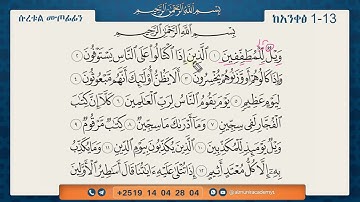 ሱረቱል ሙጦፊፊን
بِسْمِ اللَّهِ الرَّحْمَٰنِ الرَّحِيمِ
ከአንቀፅ 1-13
بِسْمِ اللَّهِ الرَّحْمَٰنِ الرَّحِيمِ
وَيْلٌ لِّلْمُطَفِّفِينَ ١ الَّذِينَ إِذَا اكْتَالُوا عَلَى النَّاسِ يَسْتَوْفُونَ ٢
وَإِذَا كَالُوهُمْ أَو وَّزَنُوهُمْ يُخْسِرُونَ ٣ أَلَا يَظُنُّ أُولَٰئِكَ أَنَّهُم مَّبْعُوثُونَ ٤
لِيَوْمٍ عَظِيمٍ ٥ يَوْمَ يَقُومُ النَّاسُ لِرَبِّ الْعَالَمِينَ ٦ كَلَّا إِنَّ كِتَابَ
الْفُجَّارِ لَفِي سِجِّينٍ ٧ وَمَا أَدْرَاكَ مَا سِجِّينٌ ٨ كِتَابٌ مَّرْقُومٌ ٩
وَيْلٌ يَوْمَئِذٍ لِّلْمُكَذِّبِينَ ١٠ الَّذِينَ يُكَذِّبُونَ بِيَوْمِ الدِّينِ ١١ وَمَا يُكَذِّبُ
بِهِ إِلَّا كُلُّ مُعْتَدٍ أَثِيمٍ ١٢ إِذَا تُتْلَىٰ عَلَيْهِ آيَاتُنَا قَالَ أَسَاطِيرُ الْأَوَّلِينَ
+2519 14 04 28 04